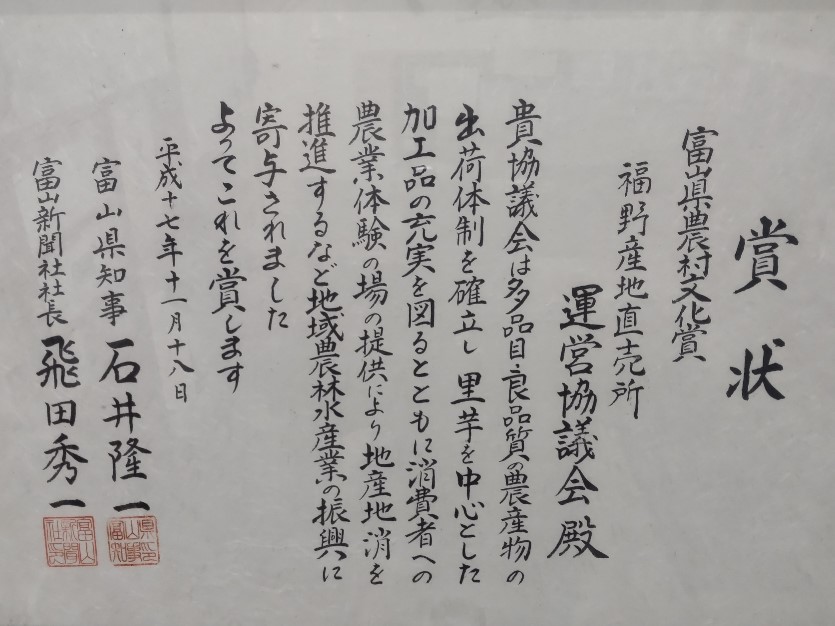 賞状
富山県農村文化賞
福野産地直売所
運営協議会殿
貴協議会は多品目良品質の農産物の
出荷体制を確立し里芋を中心とした
加工品の充実を図るとともに消費者への
農業体験の場の提供により地産地消を
推進するなど地域農林水産業の振興に
寄与されました
よってこれを賞します
平成十七年十一月十八日
富山県知事 石井隆一
富山新聞社社長 飛田秀一